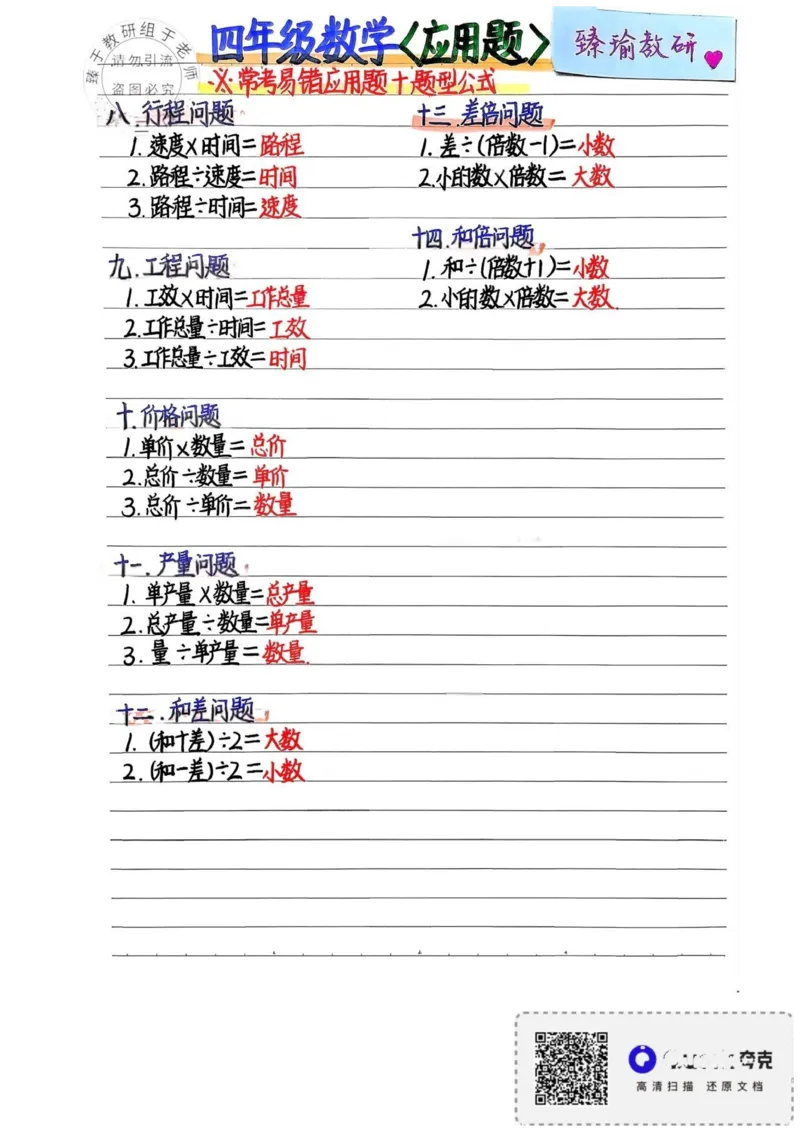 四年级数学<应用题>
臻瑜教研
臻于教研组于老师
请勿引流
盗图必究
※常考易错应用题+题型公式
八.行程问题
1.速度×时间=路程
2.路程÷速度=时间
3.路程÷时间=速度
九.工程问题
1.工效×时间=工作总量
2.工作总量÷时间=工效
3.工作总量÷工效=时间
十.价格问题
1.单价×数量=总价
2.总价÷数量=单价
3.总价÷单价=数量
十一.产量问题
1.单产量×数量=总产量
2.总产量÷数量=单产量
3.量÷单产量=数量.
十二.和差问题
1.(和+差)÷2=大数
2.(和-差)÷2=小数
十三.差倍问题
1.差÷(倍数-1)=小数
2.小的数×倍数=大数
十四.和倍问题
1.和÷(倍数+1)=小数
2.小的数×倍数=大数.
夸克
高清扫描 还原文档